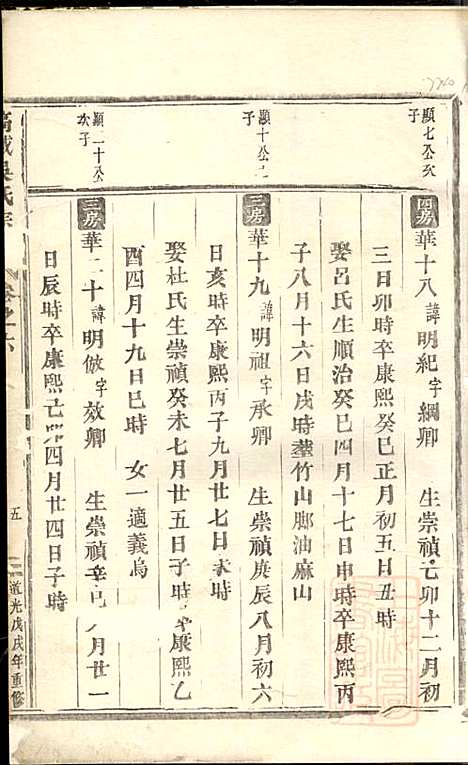 顯七公次子
四房華十八諱明紀字綱卿 生崇禎己卯十二月初
三日卯時卒康熙癸巳正月初五日丑時
娶呂氏生順治癸巳四月十七日申時卒康熙丙
子八月十六日戌時塟竹山鄌油麻山
顯十公上子
三房華十九諱明祖字承卿 生崇禎庚辰八月初六
日亥時卒康熙丙子九月廿七日未時
娶杜氏生崇禎癸未七月廿五日子時卒康熙乙
酉四月十九日巳時 女一適義烏
顯二十公次子
三房華二十諱明倣字效卿 生崇禎辛巳八月廿一
日辰時卒康熙己卯四月廿四日子時
吳氏宗
卷之六
五
道光戊戌年重修